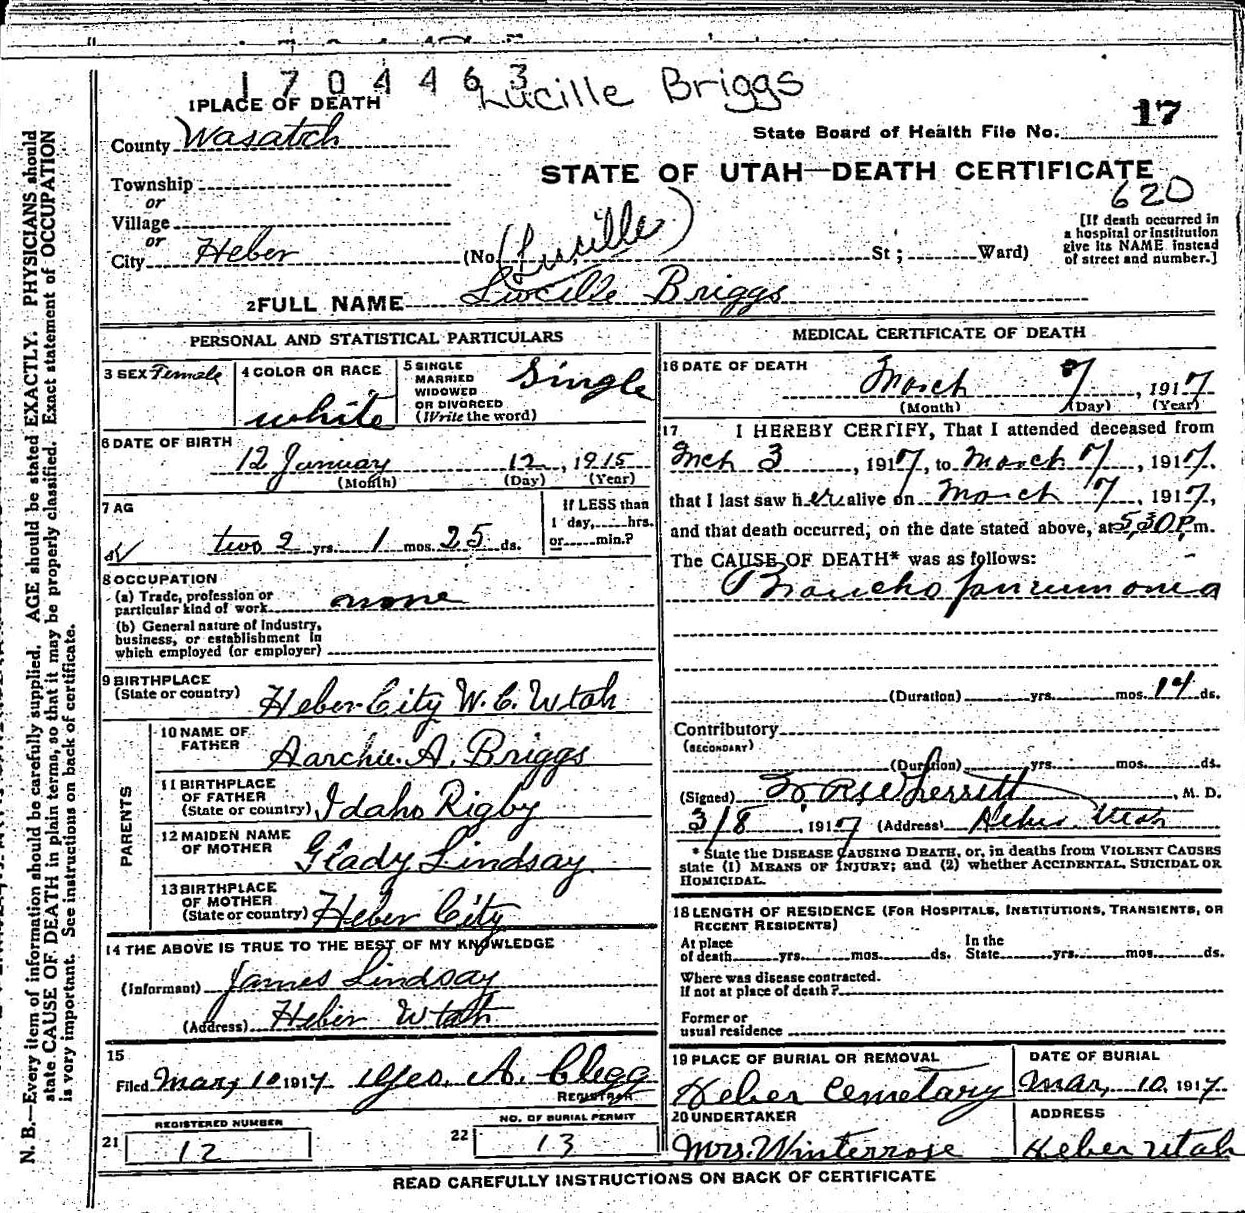 1704463 Lucille Briggs
1 PLACE OF DEATH
County Wasatch
State Board of Health File No. 17
STATE OF UTAH—DEATH CERTIFICATE
620
Township
or
Village
or
City Heber
(No. (Lucille) St; Ward)
[If death occurred in
a hospital or institution
give its NAME instead
of street and number.]
2 FULL NAME Lucille Briggs
PERSONAL AND STATISTICAL PARTICULARS
3 SEX Female
4 COLOR OR RACE
white
5 SINGLE
MARRIED
WIDOWED
OR DIVORCED
(Write the word)
Single
6 DATE OF BIRTH
12 January 12, 1915
(Month) (Day) (Year)
7 AG
two 2 yrs. 1 mos. 25 ds.
If LESS than
1 day, hrs.
or min.?
8 OCCUPATION
(a) Trade, profession or
particular kind of work none
(b) General nature of Industry,
business, or establishment in
which employed (or employer)
9 BIRTHPLACE
(State or country) Heber City W. C. Utah
PARENTS
10 NAME OF
FATHER Aarchie. A. Briggs
11 BIRTHPLACE
OF FATHER
(State or country) Idaho Rigby
12 MAIDEN NAME
OF MOTHER Glady Lindsay
13 BIRTHPLACE
OF MOTHER
(State or country) Heber City
14 THE ABOVE IS TRUE TO THE BEST OF MY KNOWLEDGE
(Informant) James Lindsay
(Address) Heber Utah
15
Filed Mar, 10 1917 Geo. A. Clegg
REGISTRAR
REGISTERED NUMBER
21 12
NO. OF BURIAL PERMIT
22 13
MEDICAL CERTIFICATE OF DEATH
16 DATE OF DEATH
March 7, 1917
(Month) (Day) (Year)
17 I HEREBY CERTIFY, That I attended deceased from
Mch 3, 1917, to March 7, 1917.
that I last saw her alive on March 7, 1917,
and that death occurred, on the date stated above, at 5,30 P.m.
The CAUSE OF DEATH* was as follows:
Broncho pneumonia
(Duration) yrs. mos. 14 ds.
Contributory
(SECONDARY)
(Duration) yrs. mos. ds.
(Signed) Wherritt, M. D.
3/8, 1917 (Address) Heber Utah
* State the DISEASE CAUSING DEATH, or, in deaths from VIOLENT CAUSES
state (1) MEANS OF INJURY; and (2) whether ACCIDENTAL, SUICIDAL OR
HOMICIDAL.
18 LENGTH OF RESIDENCE (FOR HOSPITALS, INSTITUTIONS, TRANSIENTS, OR
RECENT RESIDENTS)
At place
of death yrs. mos. ds.
In the
State yrs. mos. ds.
Where was disease contracted.
If not at place of death?
Former or
usual residence
19 PLACE OF BURIAL OR REMOVAL
Heber Cemetary
DATE OF BURIAL
Mar, 10, 1917.
20 UNDERTAKER
Mrs. Winterrose
ADDRESS
Heber Utah
READ CAREFULLY INSTRUCTIONS ON BACK OF CERTIFICATE
N. B.—Every item of information should be carefully supplied. AGE should be stated EXACTLY. PHYSICIANS should
state CAUSE OF DEATH in plain terms, so that it may be properly classified. Exact statement of OCCUPATION
is very important. See instructions on back of certificate.